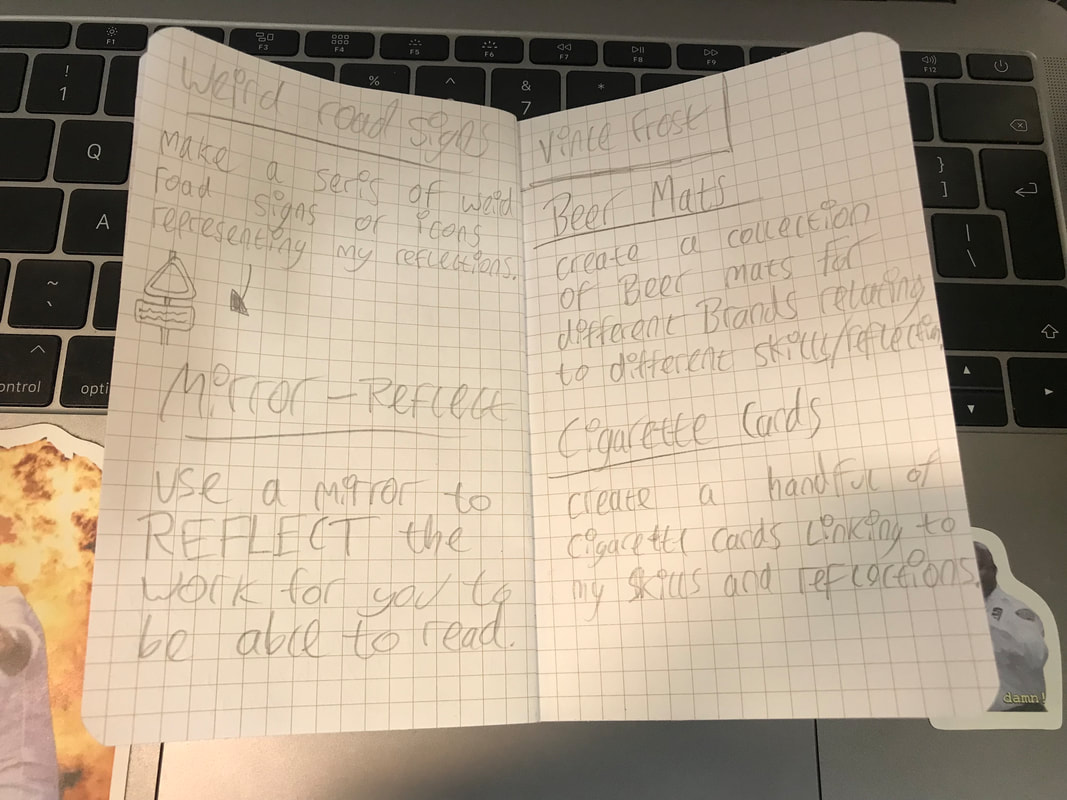 Weird road signs
make a seris of weird
road signs or icons
representing my reflections.
Mirror - Reflect
use a mirror to
REFLECT the
work for you to
be able to read.
Vince Frost
Beer Mats
create a collection
of Beer mats for
different Brands relating
to different skills/reflection
Cigarette Cards
create a handful of
cigarette cards linking to
my skills and reflections.
F1
F3
F4
F5
F6
F7
F8
F9
F12
!
1
%
^
&
7
*
Q
A
~
`
}
]
|
\
^
ontrol
opti
damn!